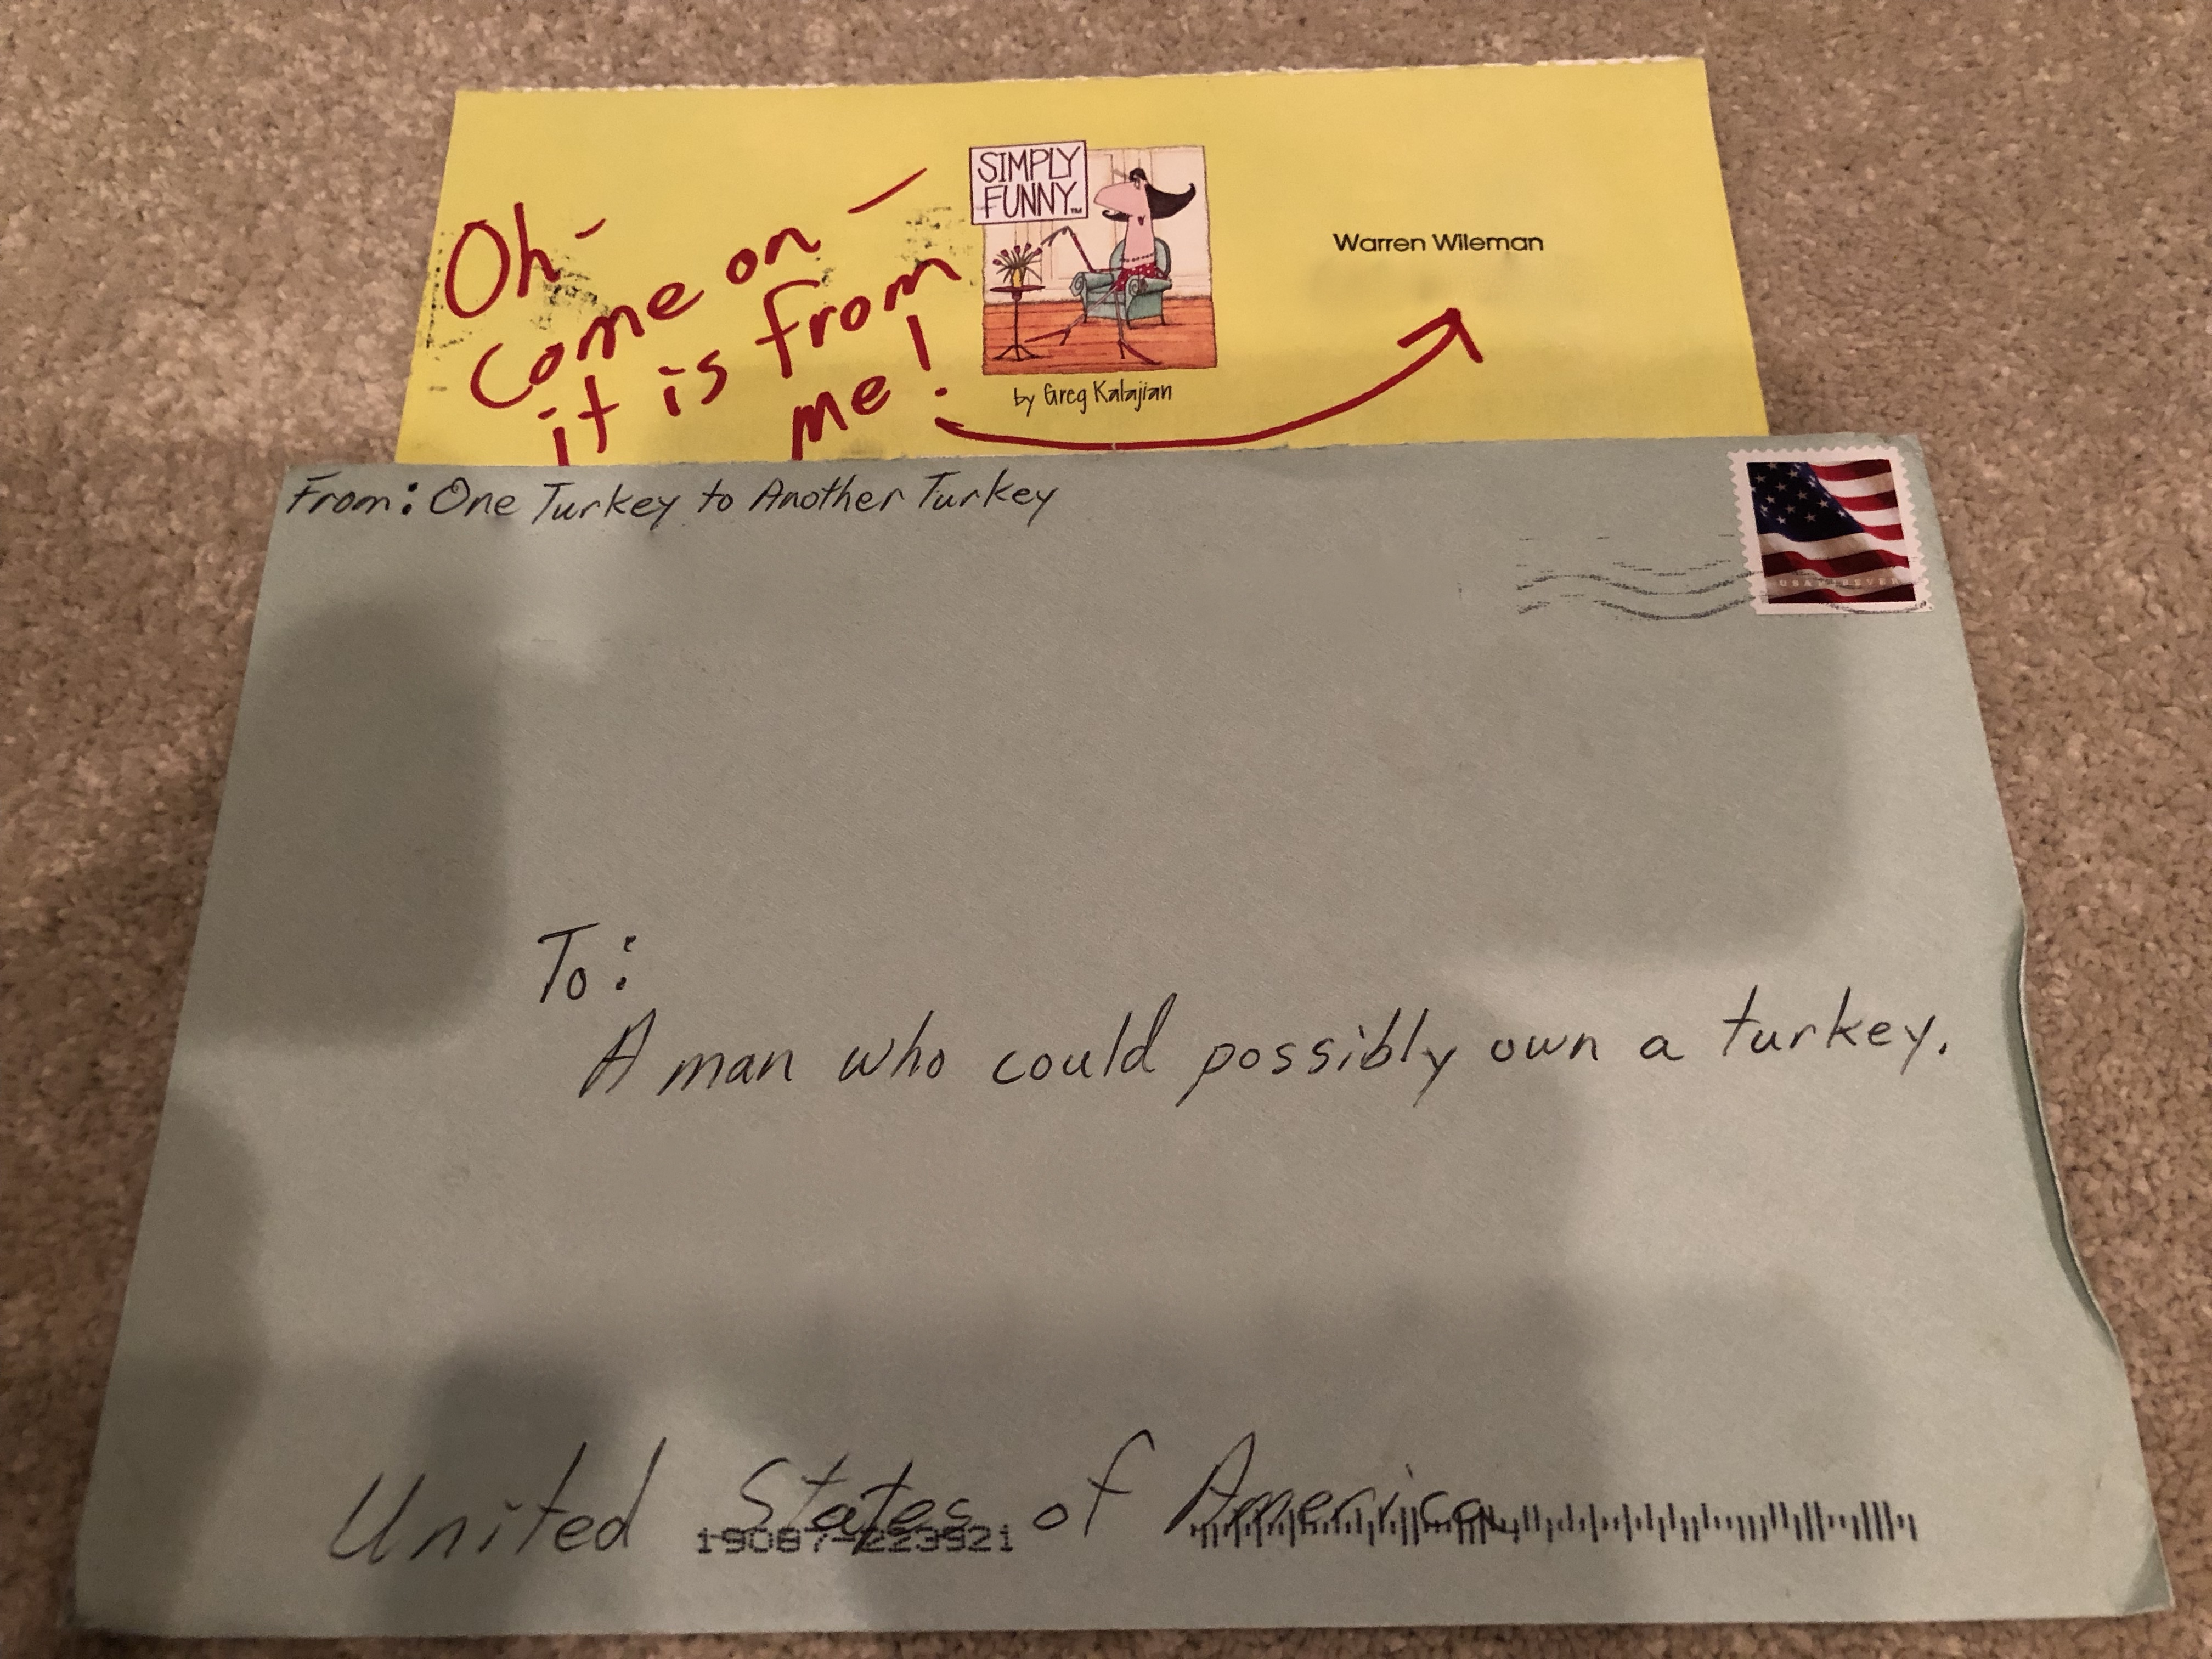 Oh -
Come on -
it is from
me!
SIMPLY
FUNNY™
by Greg Kalajian
Warren Wileman
From: One Turkey to Another Turkey
USA FOREVER
To:
A man who could possibly own a turkey.
United States of America
19087-223921